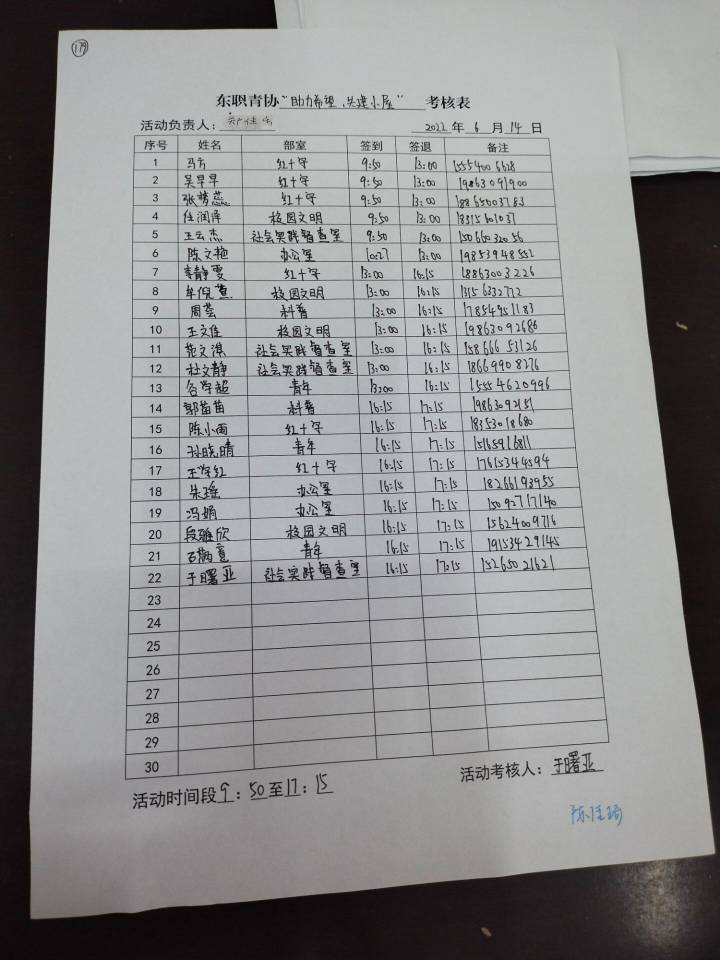 179
东职青协“助力希望,共建小屋” 考核表
活动负责人:
2022 年 6 月 14 日
序号 姓名 部室 签到 签退 备注
1 马方 红十字 9:50 13:00 15554006628
2 吴早早 红十字 9:50 13:00 19863091900
3 张梦蕊 红十字 9:50 13:00 18865003783
4 任润泽 校园文明 9:50 13:00 18315601037
5 王云杰 社会实践督查室 9:50 13:00 15066032056
6 陈文艳 办公室 10:27 13:00 19853948552
7 李静雯 红十字 13:00 16:15 18863003226
8 牟倪萱 校园文明 13:00 16:15 13156332712
9 周荟 科普 13:00 16:15 17854951183
10 王文佳 校园文明 13:00 16:15 19863092686
11 范文淇 社会实践督查室 13:00 16:15 15866653126
12 杜文静 社会实践督查室 13:00 16:15 18669908276
13 谷学超 青年 13:00 16:15 15554620996
14 郭苗苗 科普 16:15 17:15 19863092151
15 陈小雨 红十字 16:15 17:15 18353018680
16 孙晓晴 青年 16:15 17:15 15165916811
17 王学红 红十字 16:15 17:15 17615344594
18 朱瑶 办公室 16:15 17:15 18266193955
19 冯娟 办公室 16:15 17:15 15092717140
20 段雅欣 校园文明 16:15 17:15 15624009716
21 青年 16:15 17:15 19153429145
22 于曙亚 社会实践督查室 16:15 17:15 15265021621
23
24
25
26
27
28
29
30
活动时间段 9:50至17:15
活动考核人:于曙亚
陈佳琦